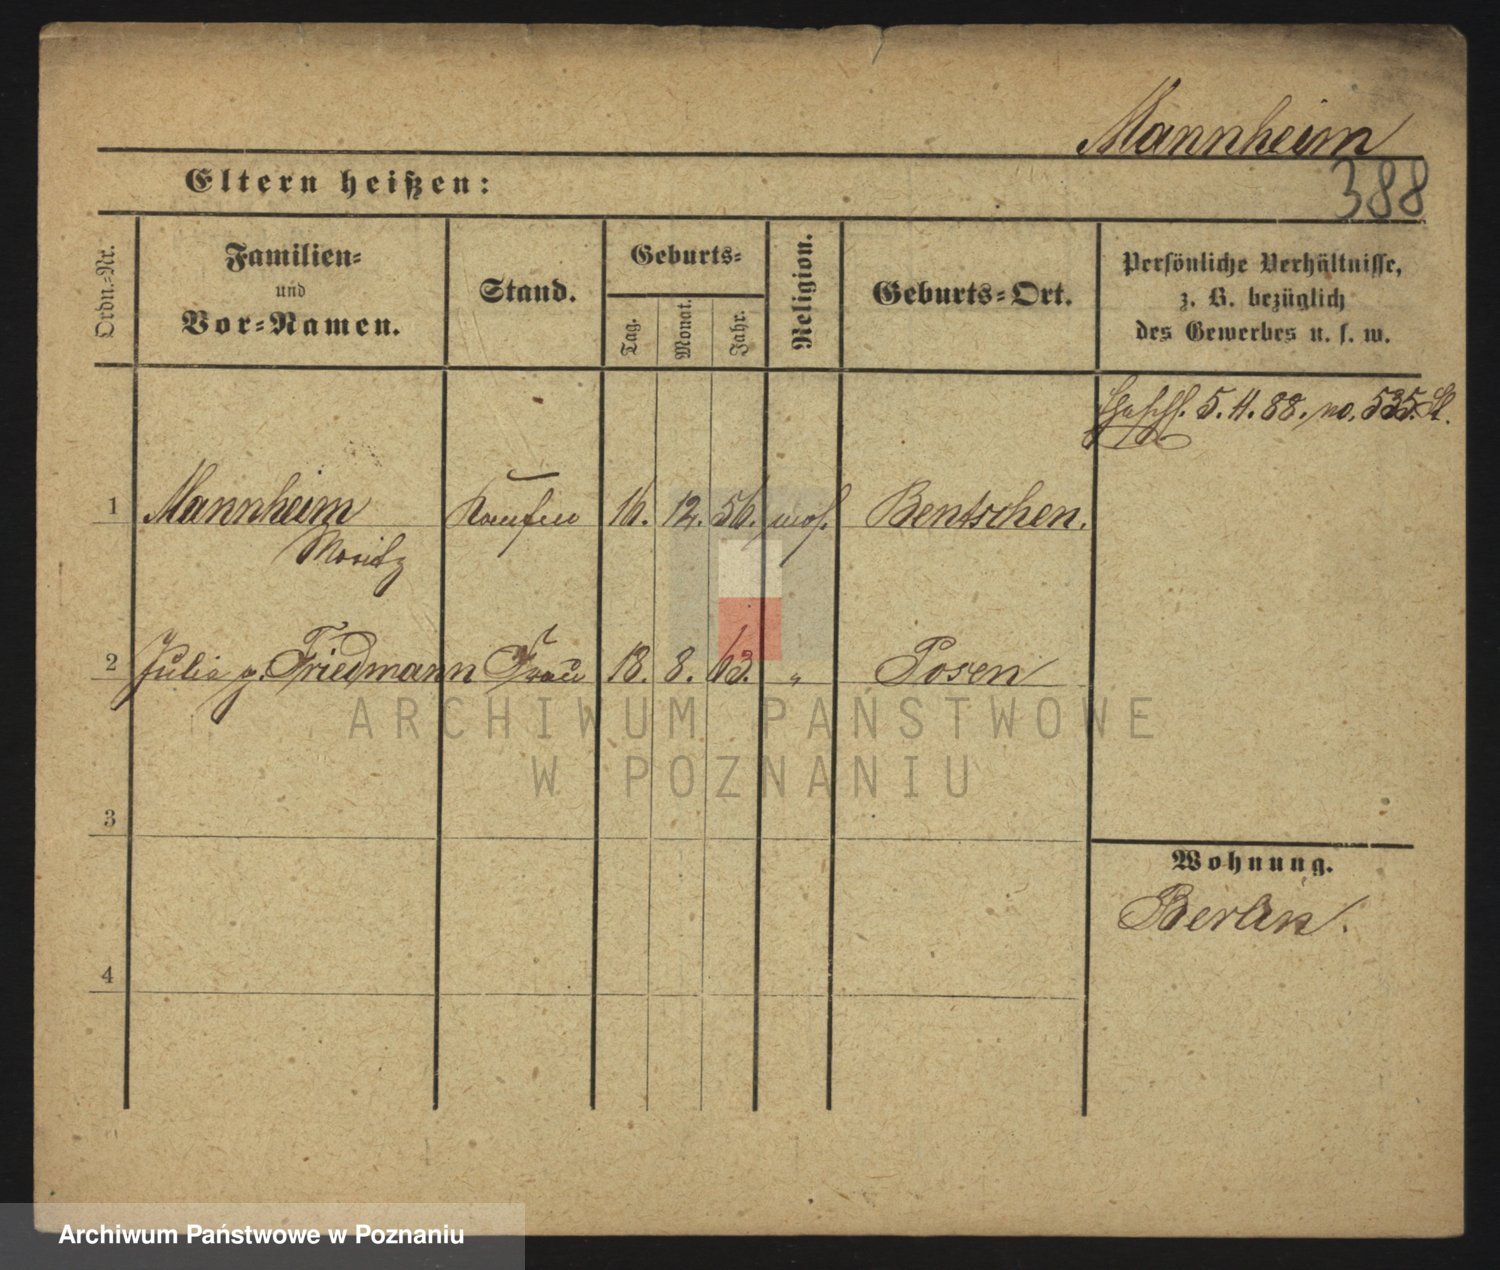 Mannheim
388
Eltern heißen:
Ordn.-Nr.
Familien-
und
Vor-Namen.
Stand.
Geburts-
Tag.
Monat.
Jahr.
Religion.
Geburts-Ort.
Persönliche Verhältnisse,
z. B. bezüglich
des Gewerbes u. s. w.
5. 4. 88. no. 535. St.
1 Mannheim Kaufm 16. 12. 56. mos. Bentschen.
Moritz
2 Julia g. Friedmann Frau 18. 8. 63. " Posen
ARCHIWUM PAŃSTWOWE
W POZNANIU
3
Wohnung.
Berlin.
4
Archiwum Państwowe w Poznaniu